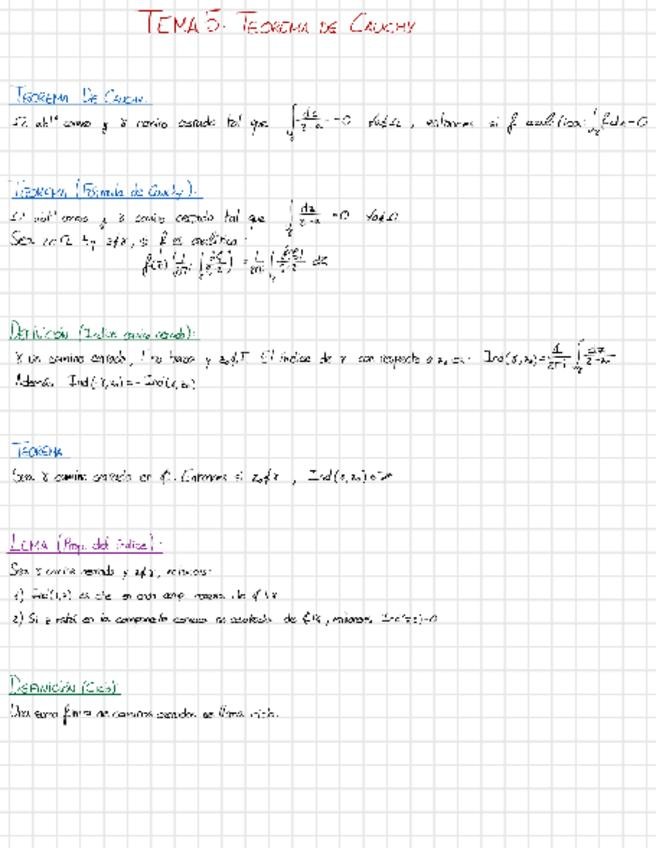 TEMA 5. TEOREMA DE CAUCHY
TEOREMA DE CAUCHY.
Ω y γ camino cerrado tal que ∫γ dz/z-a = 0 ∀a∉Ω, entonces si f analítica: ∫γ f dz=0
TEOREMA (Fórmula de Cauchy).
y γ camino cerrado tal que ∫γ dz/z-a = 0 ∀a∉Ω
Sea z∈Ω tq z∉γ, si f es analítica:
DEFINICIÓN (Índice camino cerrado):
γ un camino cerrado, Γ su traza y z₀∉Γ. El índice de γ con respecto a z₀ es: Ind(γ,z₀)=1/2πi ∫γ dz/z-z₀
Además, Ind(-γ,z₀)=-Ind(γ,z₀)
TEOREMA
Sea γ camino cerrado en ₵. Entonces si z₀∉γ, Ind(γ,z₀)∈ℤ
LEMA (Prop. del índice):
Sea γ camino cerrado y z∉γ, entonces:
1) Ind(γ,z) es cte en cada comp. conexa de ₵\γ
2) Si z está en la componente conexa no acotada de ₵\γ, entonces Ind(γ,z)=0
DEFINICIÓN (Ciclo)
Una suma finita de caminos cerrados se llama ciclo.